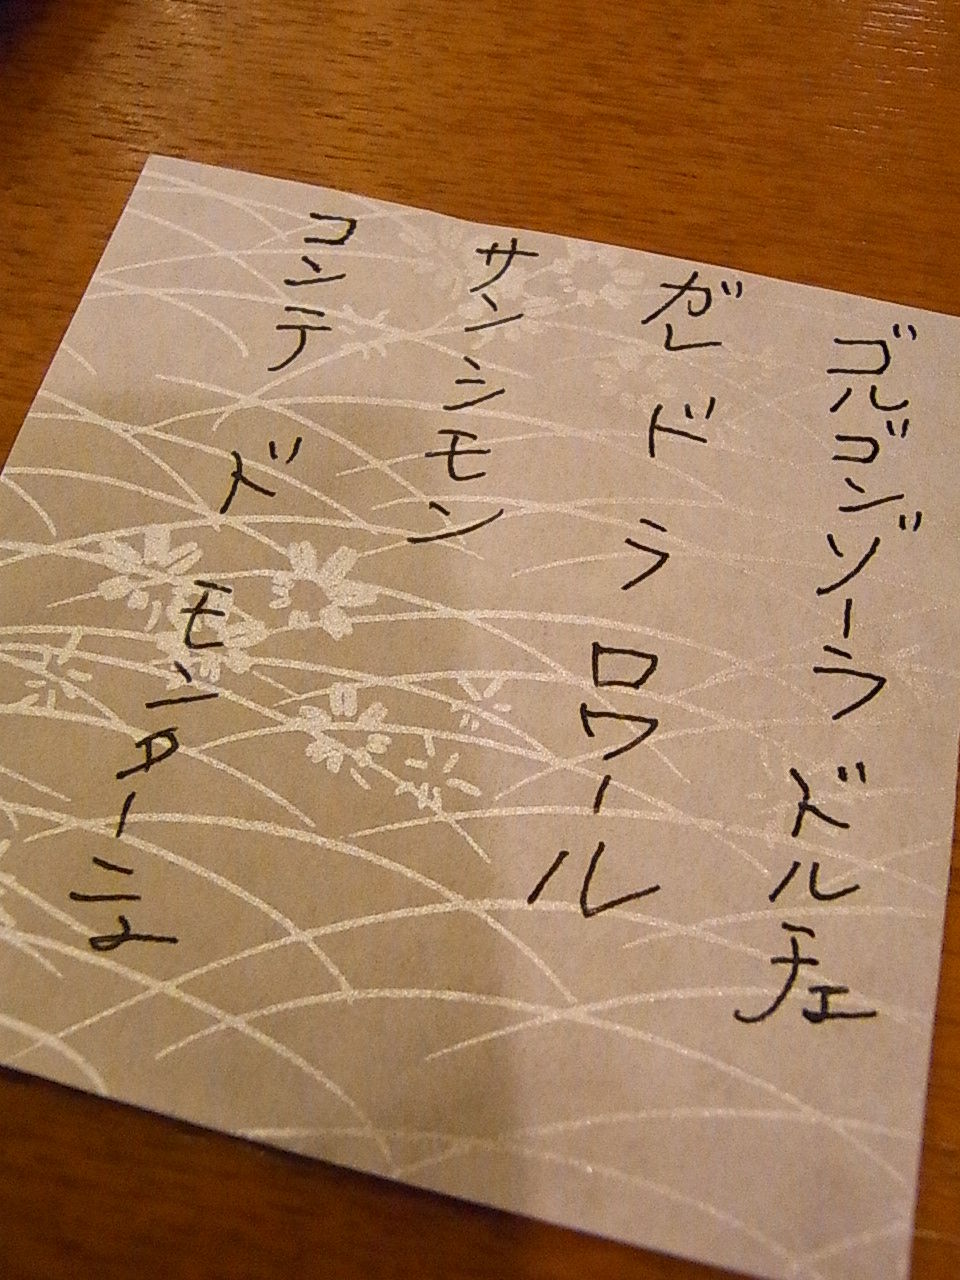 ゴルゴンゾーラ ドルチェ
ガレ ド ラ ロワール
サンシモン
コンテ ド モンターニュ